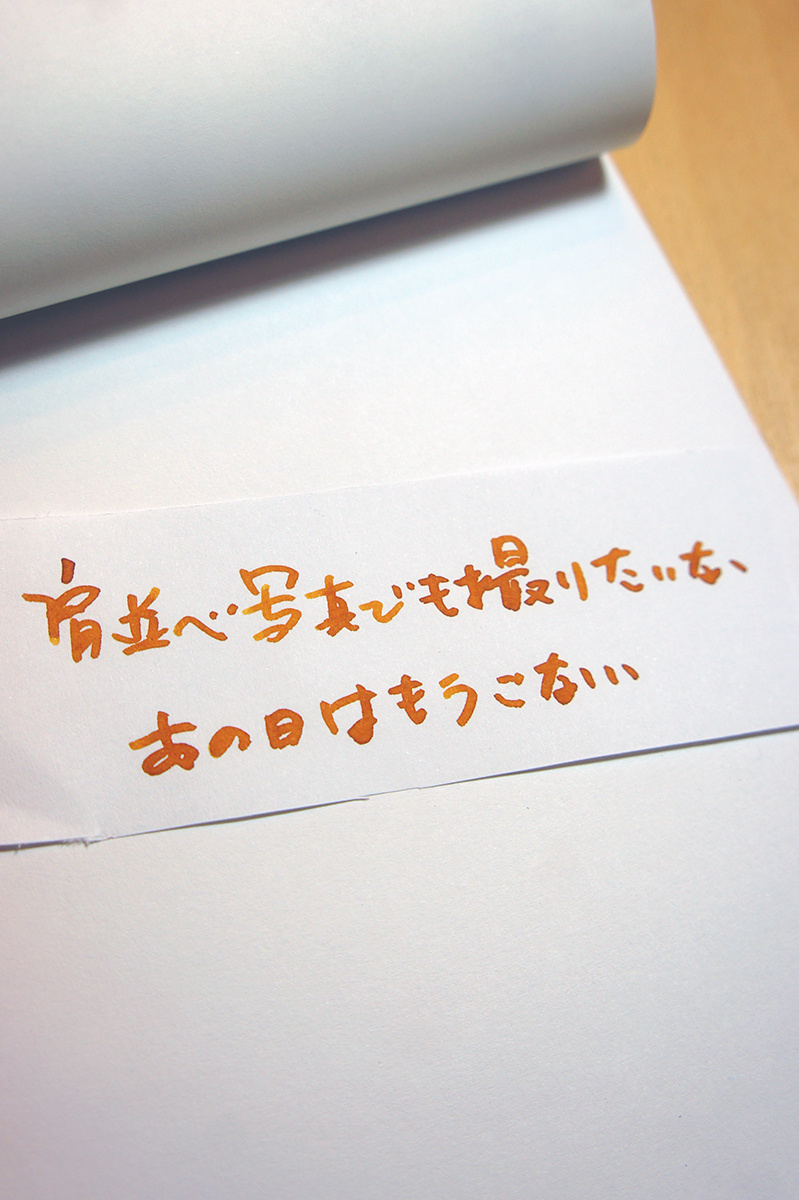 肩並べ写真でも撮りたいな、
あの日はもうこない